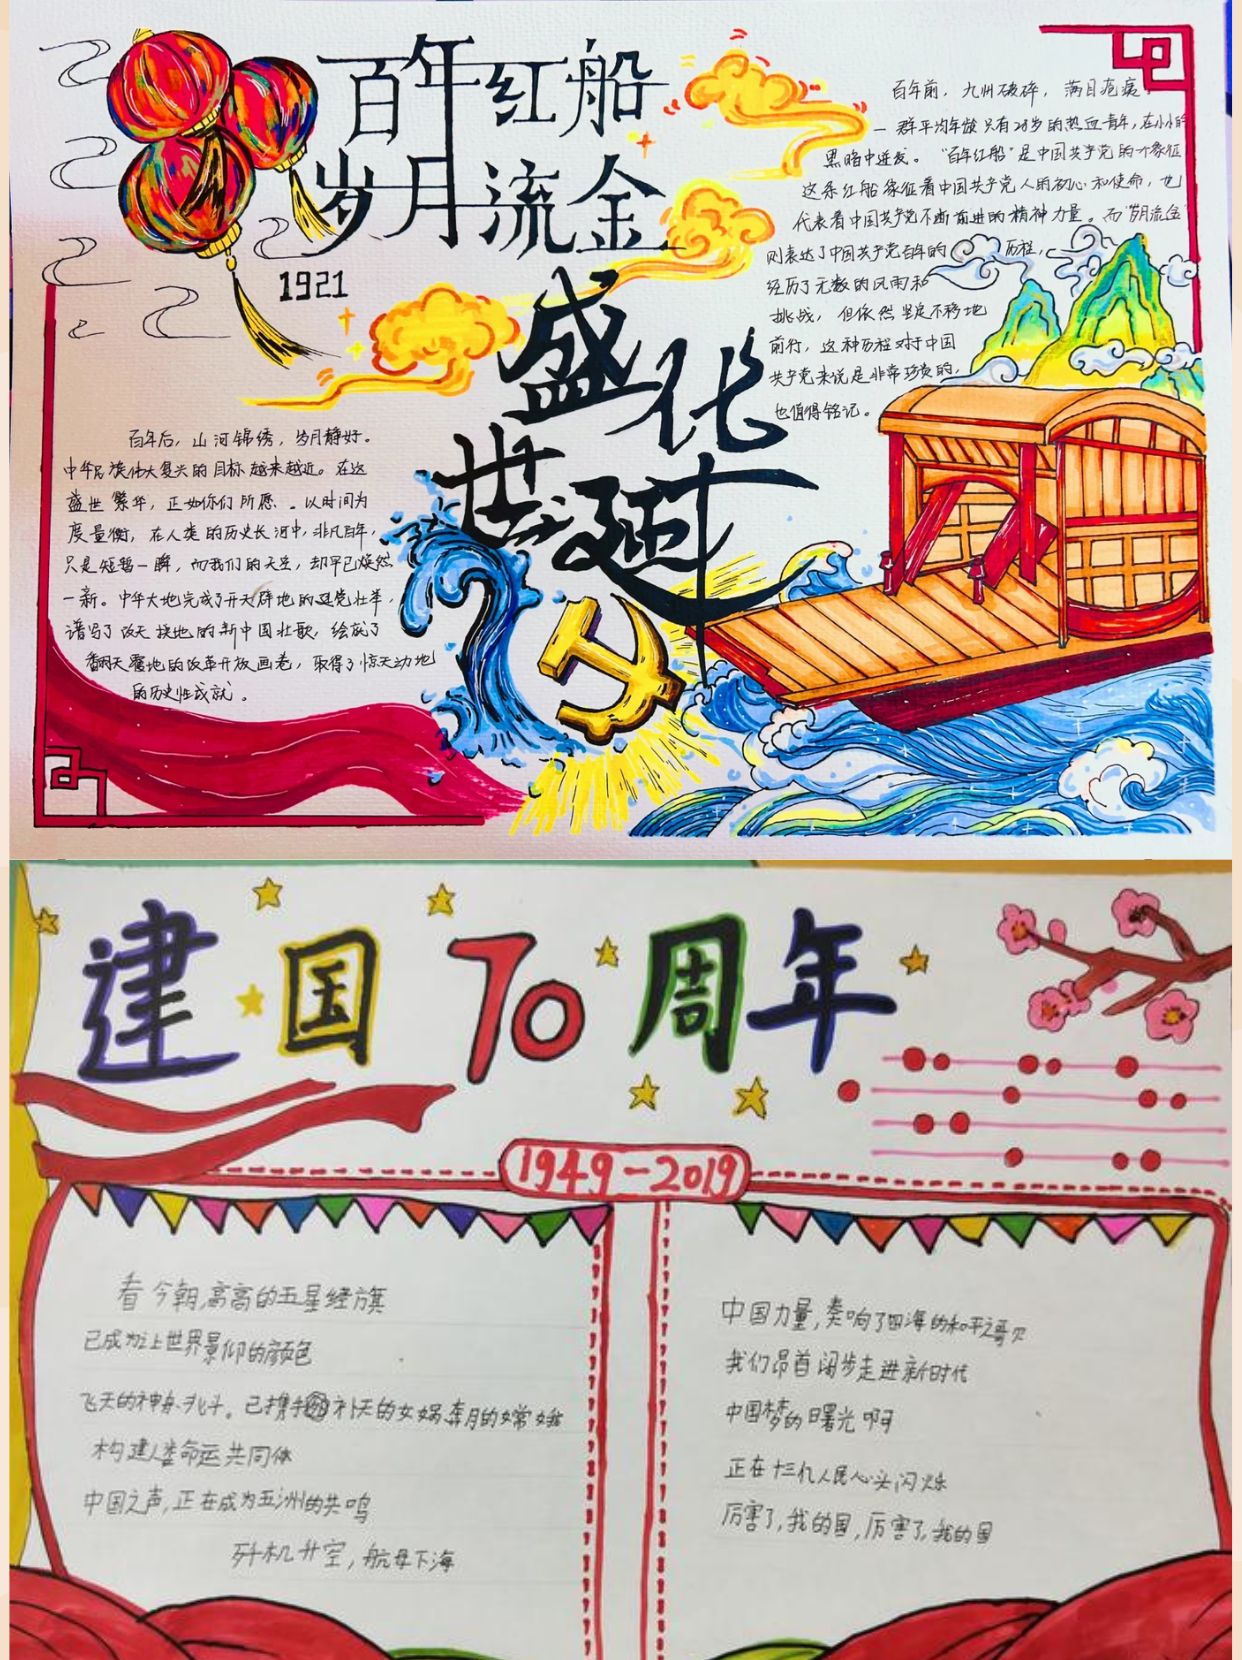 百年红船
岁月流金
1921
盛世华诞
百年前，九州破碎，满目疮痍。
一群平均年龄只有28岁的热血青年，在小小的
黑暗中迸发。“百年红船”是中国共产党的个象征
这条红船象征着中国共产党人的初心和使命，也
代表着中国共产党不断前进的精神力量。而“岁月流金”
则表达了中国共产党百年的历程，
经历了无数的风雨和
挑战，但依然坚定不移地
前行，这种历程对于中国
共产党来说是非常珍贵的，
也值得铭记。
百年后，山河锦绣，岁月静好。
中华民族伟大复兴的目标越来越近。在这
盛世繁华，正如你们所愿、。以时间为
度量衡，在人类的历史长河中，非凡百年，
只是短暂一瞬，而我们的天空，却早已焕然
一新。中华大地完成了开天辟地的建党壮举，
谱写了改天换地的新中国壮歌，绘就了
翻天覆地的改革开放画卷，取得了惊天动地
的历史性成就。
建国70周年
1949-2019
看今朝，高高的五星红旗
已成为让世界景仰的颜色
飞天的神舟。已携手补天的女娲奔月的嫦娥
构建人类命运共同体
中国之声，正在成为五洲的共鸣
歼机升空，航母下海
中国力量，奏响了四海的和平之歌
我们昂首阔步走进新时代
中国梦的曙光啊
正在十三亿人民心头闪烁
厉害了，我的国，厉害了，我的国